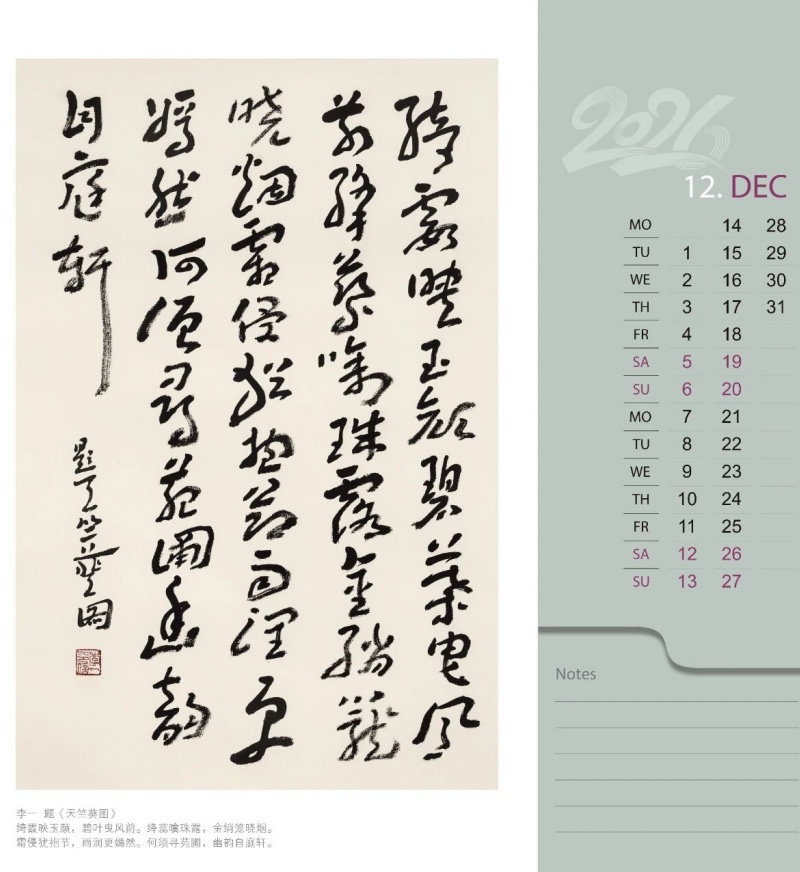 綺霞映玉顔碧葉曳風
前絳蕊噙珠露金綃籠
曉烟霜侵猶抱節雨潤更
嫣然何須尋苑圃幽韵
自庭軒
題天竺葵圖
李一 题《天竺葵图》
绮霞映玉颜，碧叶曳风前。绛蕊噙珠露，金绡笼晓烟。
霜侵犹抱节，雨润更嫣然。何须寻苑圃，幽韵自庭轩。
2026
12. DEC
MO 14 28
TU 1 15 29
WE 2 16 30
TH 3 17 31
FR 4 18
SA 5 19
SU 6 20
MO 7 21
TU 8 22
WE 9 23
TH 10 24
FR 11 25
SA 12 26
SU 13 27
Notes